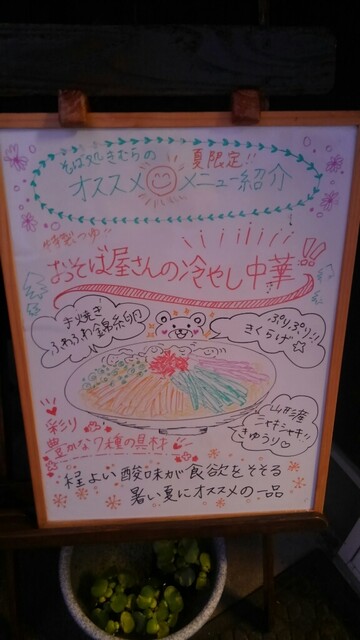 そば処きむらの
夏限定!!
オススメ メニュー紹介
特製つゆ!!
おそば屋さんの冷やし中華!!
手焼き
ふわふわ錦糸卵
ぷりぷり!!
きくらげ☆
彩り
豊かな7種の具材
山形産
シャキシャキ!!
きゅうり♡
程よい酸味が食欲をそそる
暑い夏にオススメの一品